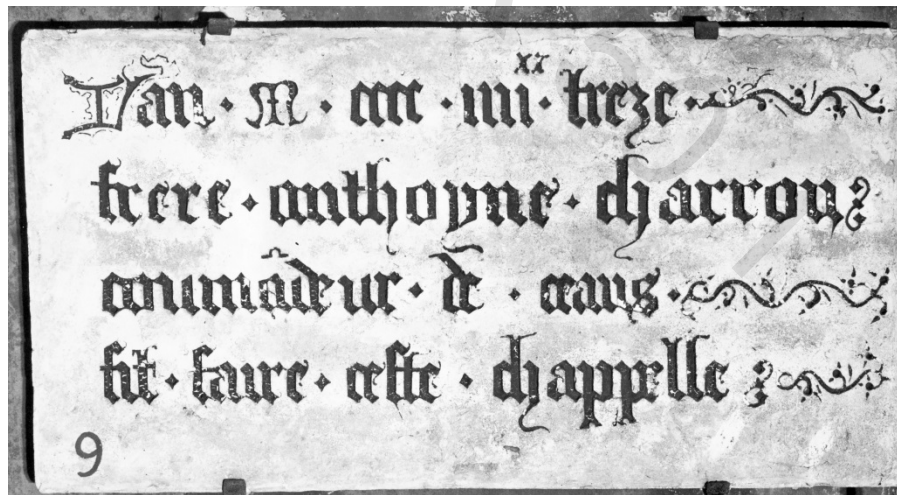 L'an · M · cccc · iiii xx · treze ·
frere · anthoyne · charron
commãdeur · de · ceans ·
fit · faire · ceste · chappelle
9